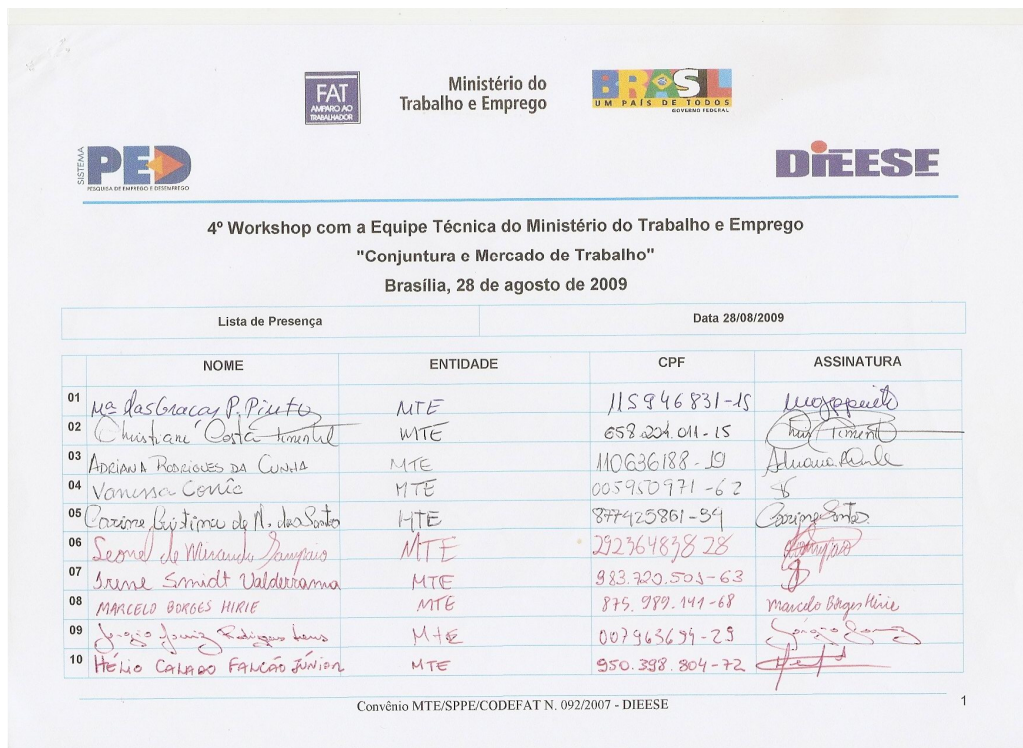 FAT
AMPARO AO
TRABALHADOR
Ministério do
Trabalho e Emprego
BRASIL
UM PAÍS DE TODOS
GOVERNO FEDERAL
SISTEMA
PED
PESQUISA DE EMPREGO E DESEMPREGO
DIEESE
4º Workshop com a Equipe Técnica do Ministério do Trabalho e Emprego
"Conjuntura e Mercado de Trabalho"
Brasília, 28 de agosto de 2009
Lista de Presença Data 28/08/2009
NOME ENTIDADE CPF ASSINATURA
01 Mª das Graças P. Pinto MTE 115946831-15
02 Christiane Costa Pimentel MTE 658.224.011-15
03 Adriana Rodrigues da Cunha MTE 110636188-19
04 Vanessa MTE 005950971-62
05 Corrine Cristina de N. dos Santos MTE 877425861-34 Corrine Santos
06 Leonel de Miranda Sampaio MTE 292364838 28 Sampaio
07 Irene Smidt Valderrama MTE 983.720.501-63
08 MARCELO BORGES HIRIE MTE 875.989.141-68 Marcelo Borges Hirie
09 Rodrigues MTE 007963694-29
10 HÉLIO CALADO FALCÃO JÚNIOR MTE 950.398.804-72
Convênio MTE/SPPE/CODEFAT N. 092/2007 - DIEESE
1